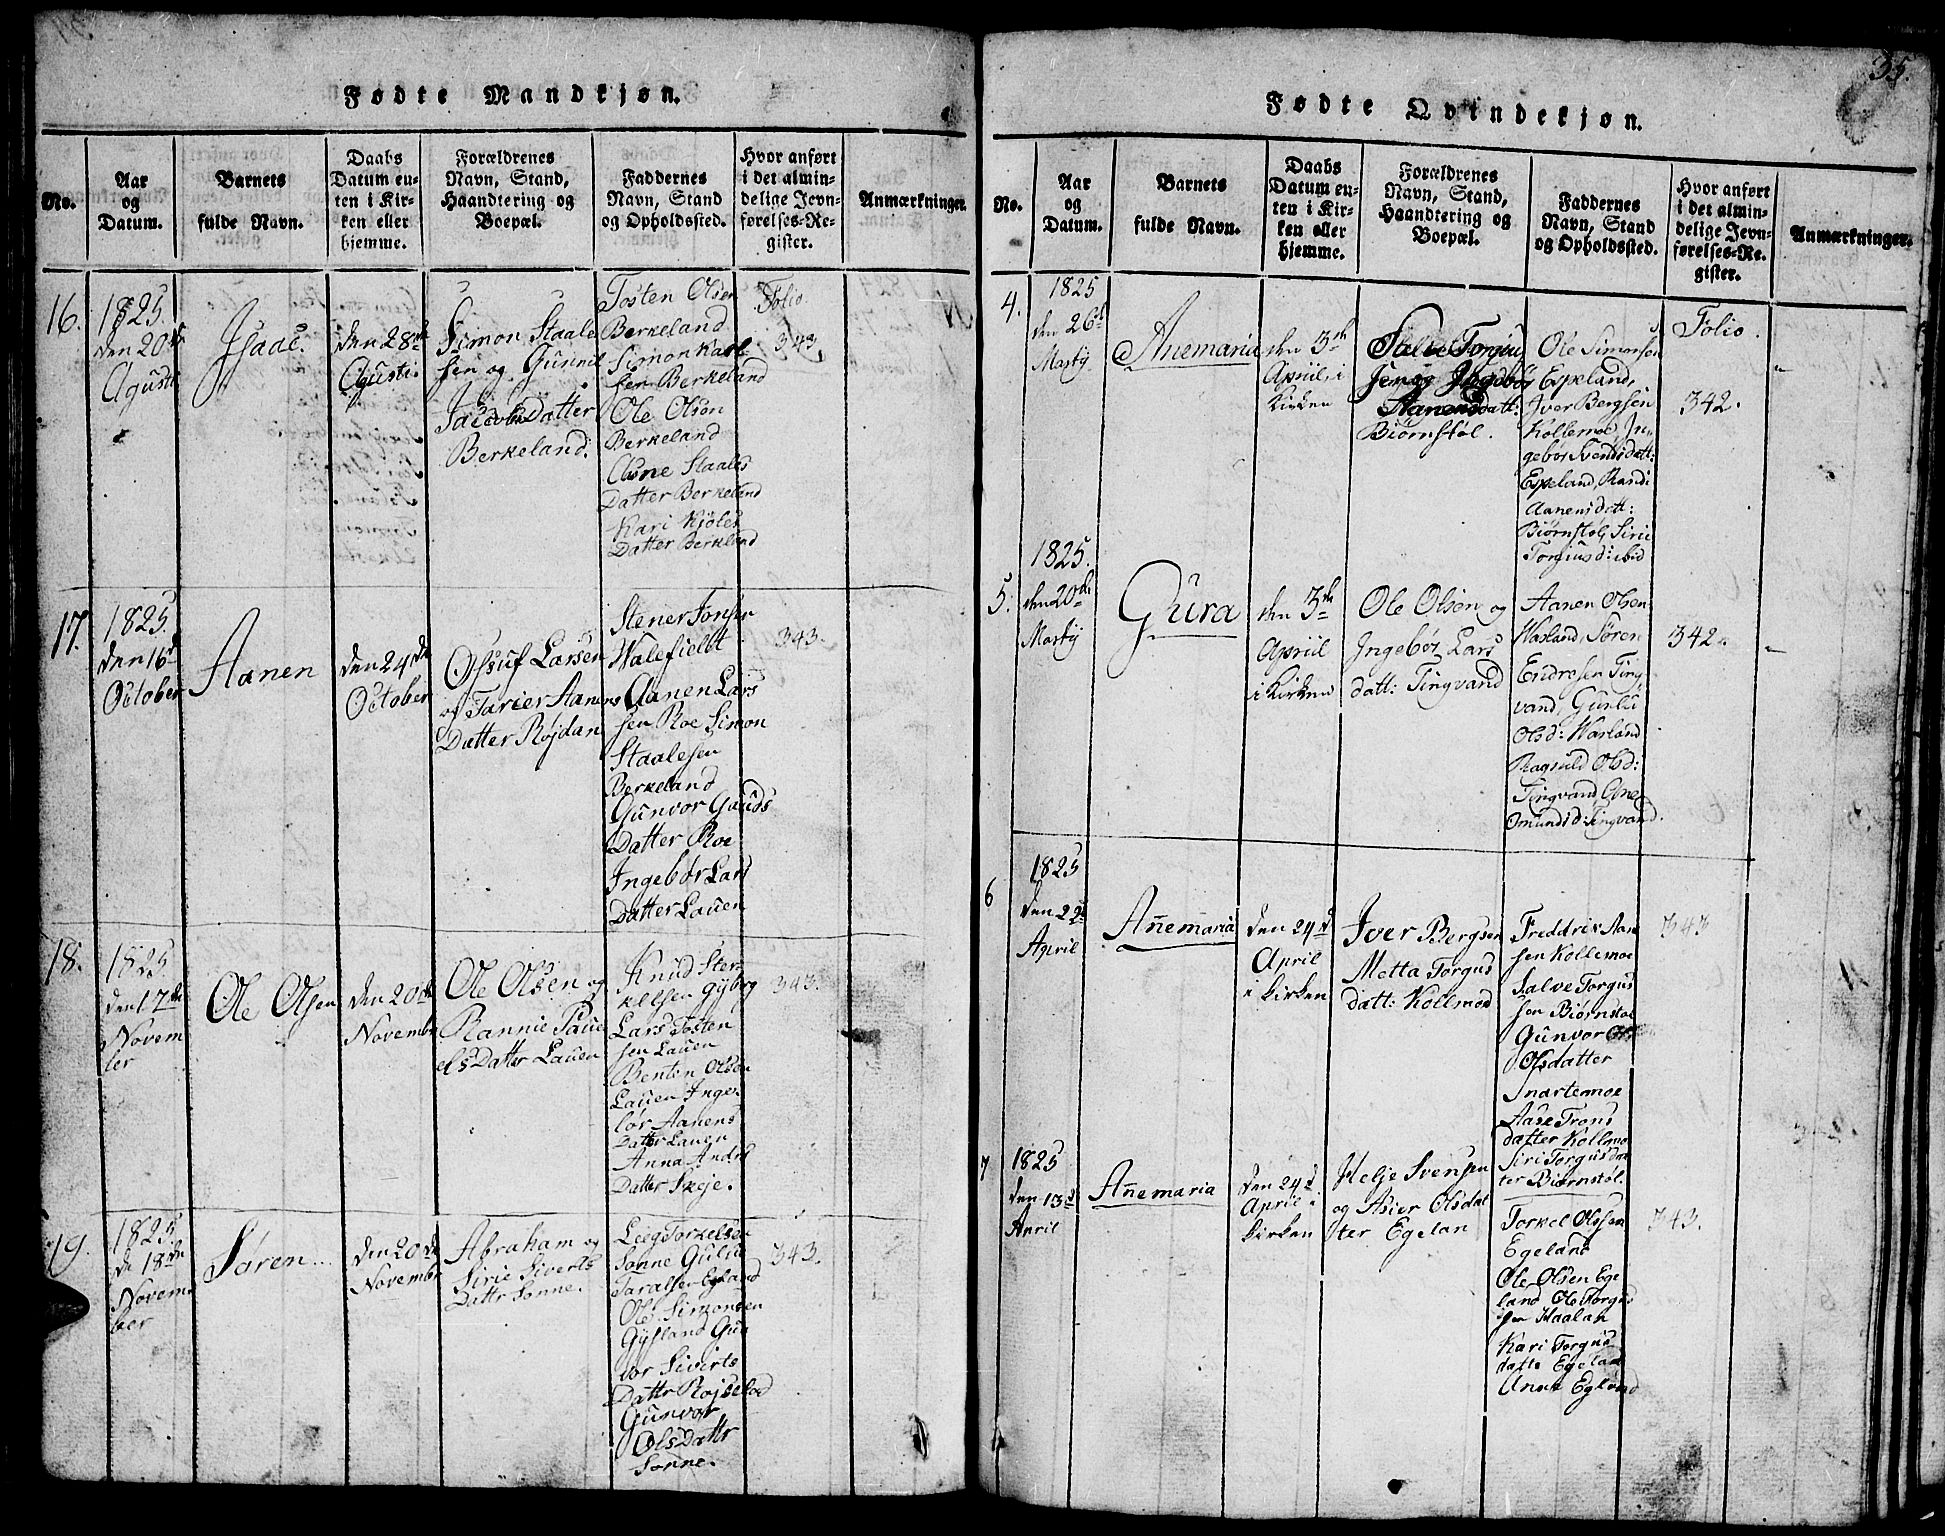 Fødte Mandkjøn.
No.
Aar
og
Datum.
Barnets
fulde Navn.
Daabs
Datum en-
ten i Kir-
ken eller
hjemme.
Forældrenes
Navn, Stand,
Haandtering og
Boepæl.
Faddernes
Navn, Stand
og Opholdssted.
Hvor anført
i det almin-
delige Jevn-
førelses-Re-
gister.
Anmærkninger.
16.
1825.
den 20de
Agusti
Isaac.
den 28de
Agusti.
Simon Staale
sen og Gunnil
Jacobs Datter
Berkeland.
Tosten Olsen
Berkeland
Simon Karl
sen Berkeland
Ole Olsen
Berkeland
Aasne Staales
Datter Berkeland
Kari Kjøles
Datter Berkeland
Folio
343.
17.
1825.
den 16d
October
Aanen
den 24de
October
Ossuf Larsen
og Tarier Aanens
Datter Røjdan
Stener Jonsen
Walefieldt
Aanen Lars
sen Roe Simon
Staalesen
Berkeland
Gunvor Gauds
Datter Roe
Ingebør Lars
Datter Lauen
343.
18.
1825
den 17de
Novem
ber
Ole Olsen
den 20de
Novembr
Ole Olsen og
Rannie Paue
els Datter Lauen
Knud Ster
kelsen Gyberg
Lars Tosten
sen Lauen
Benten Olsen
Lauen Inge
bør Aanens
Datter Lauen
Anna Andrs
Datter Skeje.
343.
19.
1825.
de 18de
Novem
ber
Søren
den 20de
Novembr
Abraham og
Sirie Siverts
Dattr Sonne.
Leeg Torkelsen
Sonne Guliu
Taralsen Egeland
Ole Simonsen
Gysland Gun
vor Siverts
Dattr Røjseland
Gunvor
Ols Dattr
Sonne.
343.
35.
Fødte Qvindekjøn.
No.
Aar
og
Datum.
Barnets
fulde Navn.
Daabs
Datum en-
ten i Kir-
ken eller
hjemme.
Forældrenes
Navn, Stand,
Haandtering og
Boepæl.
Faddernes
Navn, Stand
og Opholdssted.
Hvor anført
i det almin-
delige Jevn-
førelses-Re-
gister.
Anmærkninger.
4.
1825
den 26d
Martij
Anemaria
den 3de
Apriil, i
Kirken
Salve Torgiu
sen og Ingebør
Aanensdatt:
Biørnstøl.
Ole Simonsen
Espeland,
Iver Bergsen
Kollemoe, In-
gebør Svendsdatt:
Espeland, Randi
Aanensdatt:
Biørnstøl, Sirie
Torgiusd: ibid
Folio.
342.
5.
1825.
den 20de
Martij
Gura
den 3de
Apriil
i Kirken
Ole Olsen og
Ingebør Lars
datt: Tingvand
Aanen Olsen
Warland, Søren
Endresen Ting
vand, Gunlu
Olsd: Warland
Ragnild Olsd:
Tingvand, Ane
Omundsd: Tingvand.
342.
6
1825
den 22d
April
Anemaria
den 24d
April
i Kirken
Iver Bergsen
Metta Torgus
datt: Kollmoe
Freddrik Aan
sen Kollemoe
Salve Torgus
sen Biørnstøl
Gunvor
Olsdatter
Snartemoe
Aase Trons
datter Kollmo
Siri Torgus dat
ter Biørnstøl.
343
7
1825
den 13d
April
Anemaria
den 24d
April i
Kirken
Helje Svensen
og Asier Olsdat
ter Egelan
Torkel Olssen
Egeland
Ole Olsen Ege
land Ole Torgus
sen Haalan
Kari Torgus
datte Egelan
Anne Egland
343.